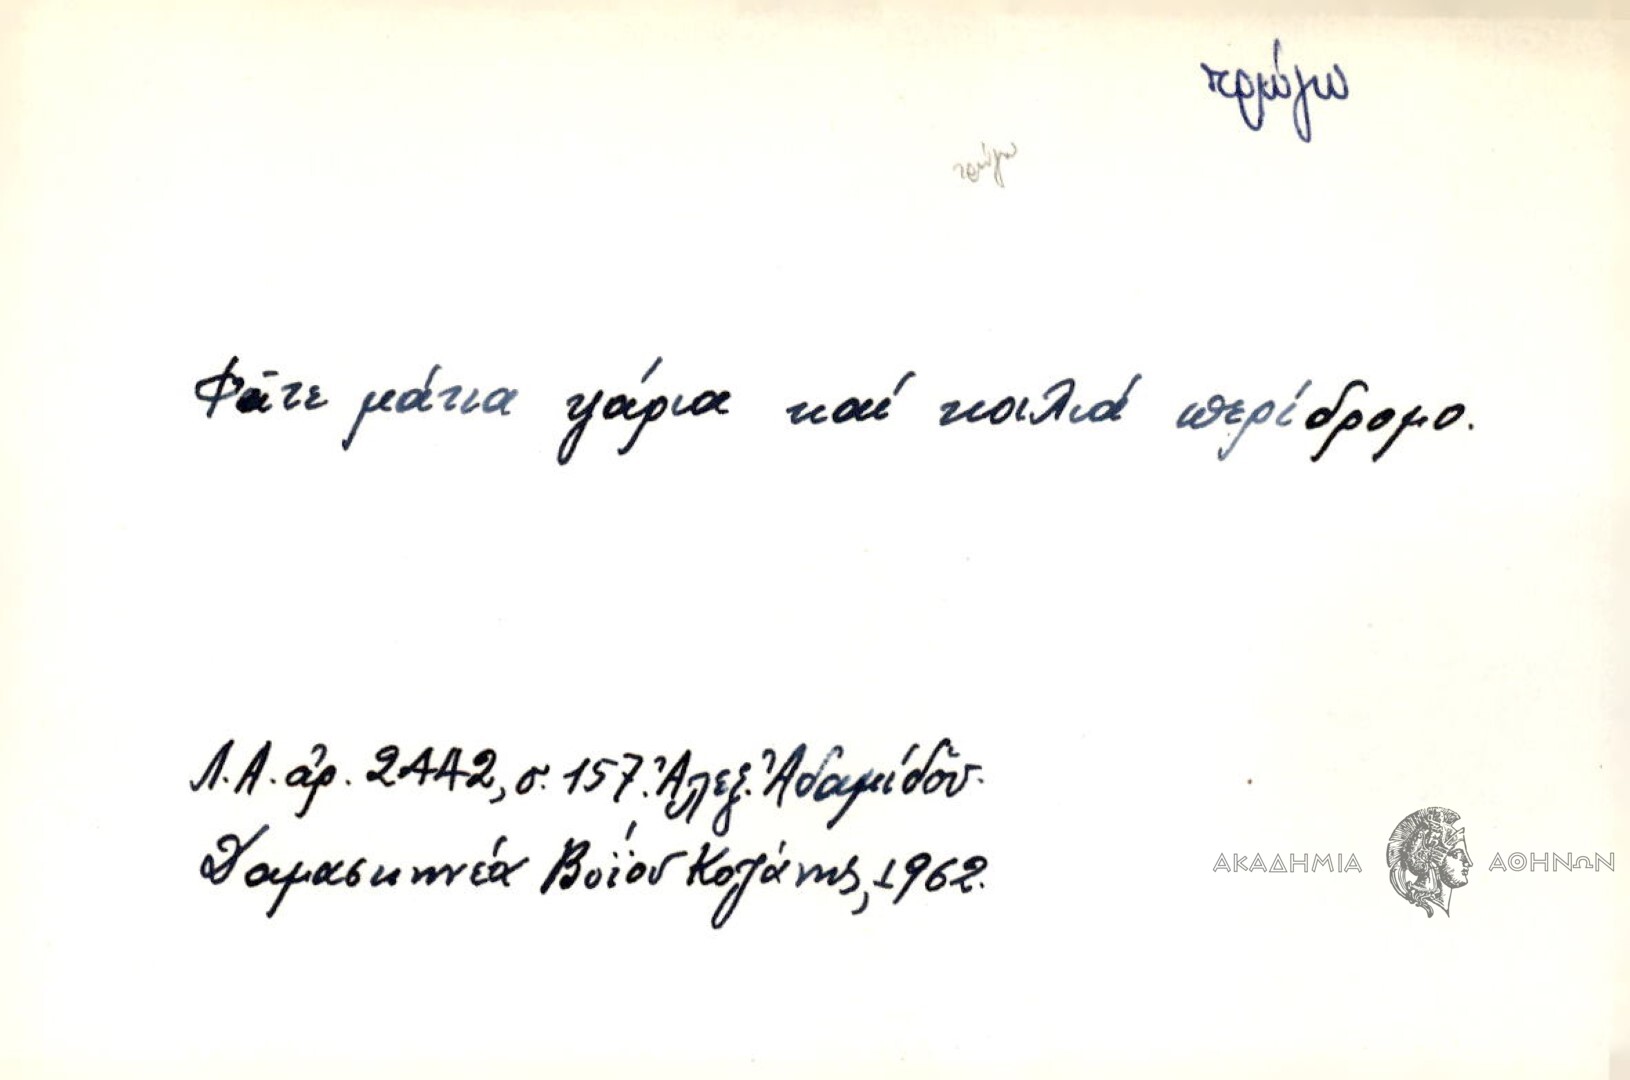 τρώγω
τρώγω
Φᾶτε μάτια ψάρια καί κοιλιά περίδρομο.
Λ.Α. ἀρ. 2442, σ. 157. Ἀλεξ. Ἀδαμίδου.
Δαμασκηνέα Βοΐου Κοζάνης, 1962.
ΑΚΑΔΗΜΙΑ ΑΘΗΝΩΝ